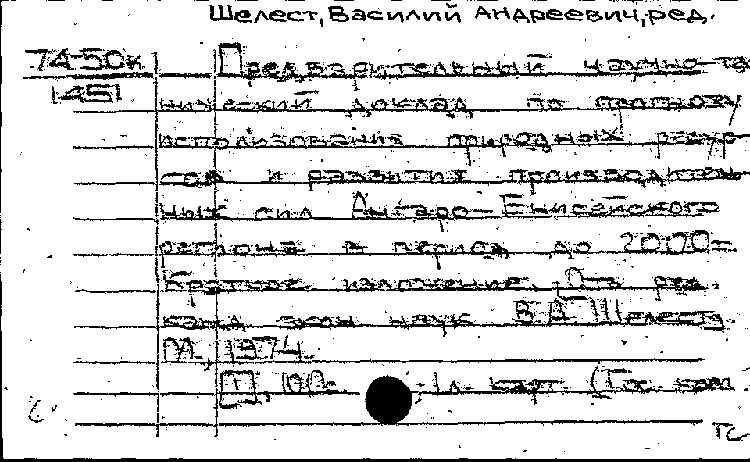 Шелест, Василий Андреевич, ред.
74-50к Предварительный научно-те-
1451 нический доклад по прогнозу
использования природных ресур-
сов и развития производитель-
ных сил Ангаро-Енисейского
региона в период до 2000г.
Краткое изложение. Под ред.
канд. экон. наук В.А. Шелеста.
М., 1974.
1 л. карт. (Гос. ком.
с.